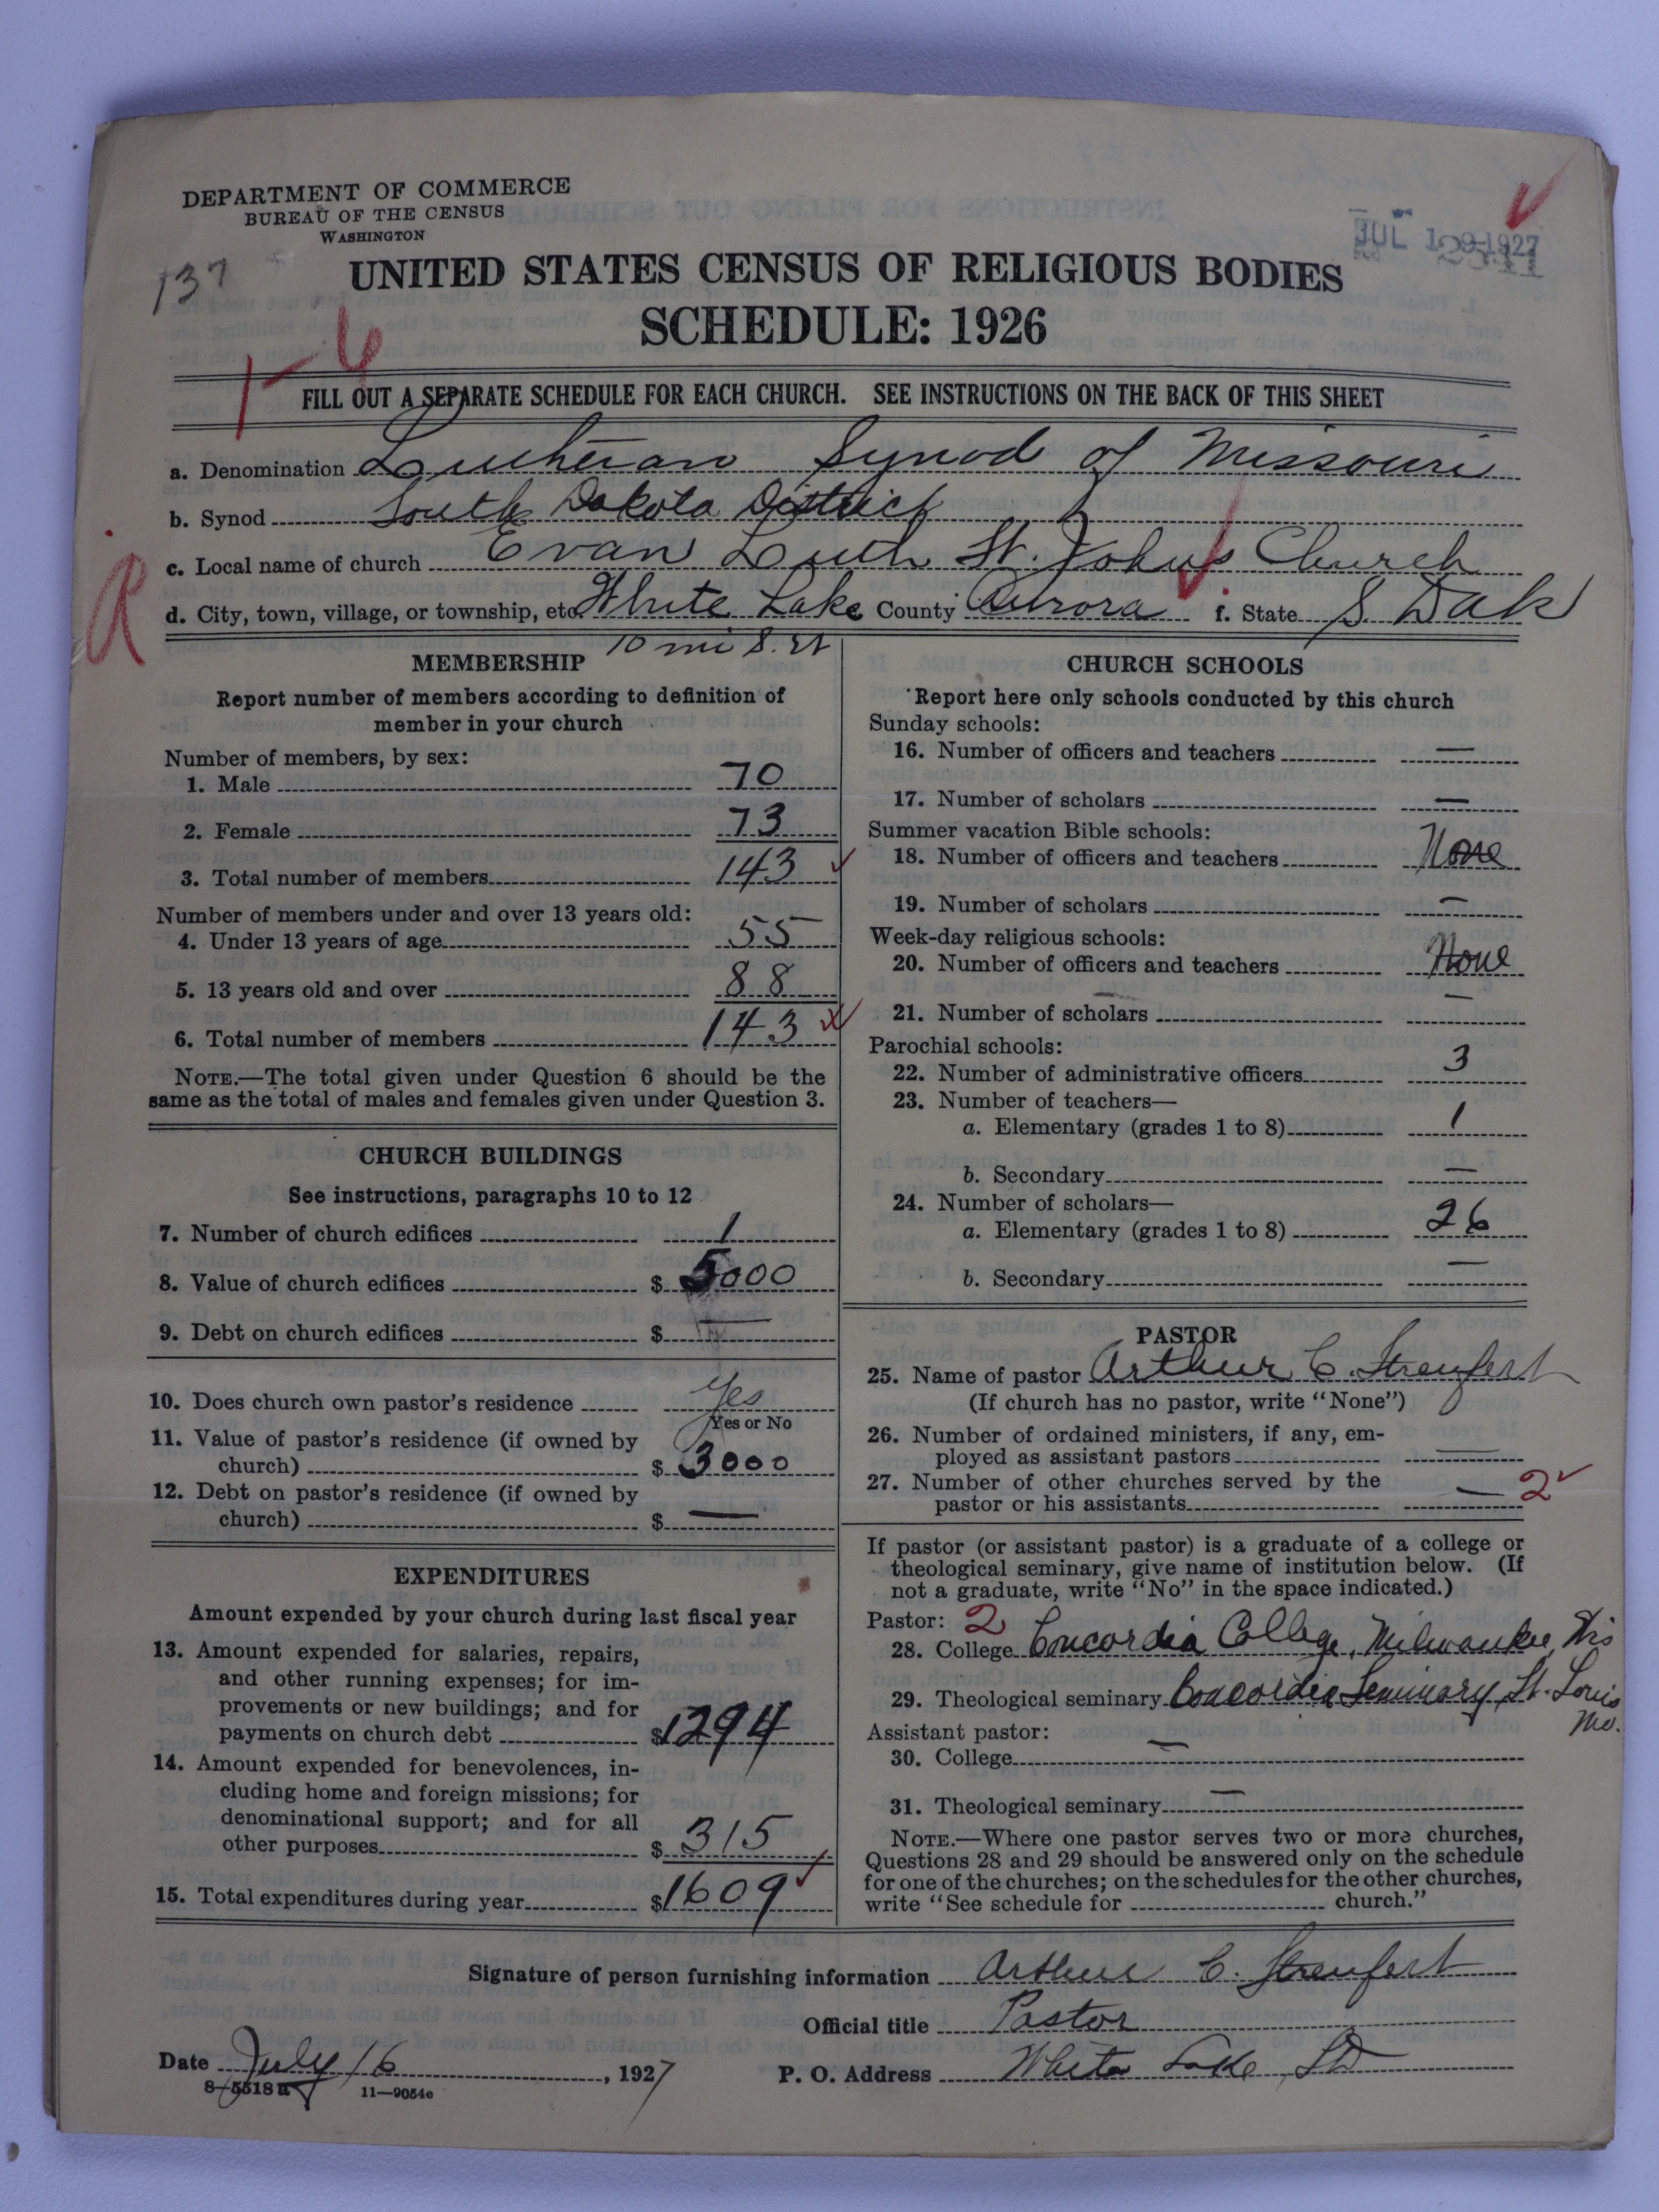 DEPARTMENT OF COMMERCE
BUREAU OF THE CENSUS
WASHINGTON
JUL 19 1927
137
UNITED STATES CENSUS OF RELIGIOUS BODIES
SCHEDULE: 1926
1-6
FILL OUT A SEPARATE SCHEDULE FOR EACH CHURCH. SEE INSTRUCTIONS ON THE BACK OF THIS SHEET
a. Denomination Lutheran Synod of Missouri
b. Synod South Dakota District
c. Local name of church Evan Luth St. Johns Church
R
d. City, town, village, or township, etc. White Lake County Aurora f. State S. Dak
10 mi S.
MEMBERSHIP
Report number of members according to definition of
member in your church
Number of members, by sex:
1. Male 70
2. Female 73
3. Total number of members 143
Number of members under and over 13 years old:
4. Under 13 years of age 55
5. 13 years old and over 88
6. Total number of members 143
NOTE.—The total given under Question 6 should be the
same as the total of males and females given under Question 3.
CHURCH BUILDINGS
See instructions, paragraphs 10 to 12
7. Number of church edifices 1
8. Value of church edifices $ 5000
9. Debt on church edifices $ —
10. Does church own pastor's residence Yes
Yes or No
11. Value of pastor's residence (if owned by
church) $ 3000
12. Debt on pastor's residence (if owned by
church) $ —
EXPENDITURES
Amount expended by your church during last fiscal year
13. Amount expended for salaries, repairs,
and other running expenses; for im-
provements or new buildings; and for
payments on church debt $ 1294
14. Amount expended for benevolences, in-
cluding home and foreign missions; for
denominational support; and for all
other purposes $ 315
15. Total expenditures during year $ 1609
CHURCH SCHOOLS
Report here only schools conducted by this church
Sunday schools:
16. Number of officers and teachers —
17. Number of scholars —
Summer vacation Bible schools:
18. Number of officers and teachers None
19. Number of scholars —
Week-day religious schools:
20. Number of officers and teachers None
21. Number of scholars —
Parochial schools:
22. Number of administrative officers 3
23. Number of teachers—
a. Elementary (grades 1 to 8) 1
b. Secondary —
24. Number of scholars—
a. Elementary (grades 1 to 8) 26
b. Secondary —
PASTOR
25. Name of pastor Arthur C. Streufert
(If church has no pastor, write "None")
26. Number of ordained ministers, if any, em-
ployed as assistant pastors —
27. Number of other churches served by the
pastor or his assistants — 2
If pastor (or assistant pastor) is a graduate of a college or
theological seminary, give name of institution below. (If
not a graduate, write "No" in the space indicated.)
Pastor: 2
28. College Concordia College, Milwaukee, Wis
29. Theological seminary Concordia Seminary, St. Louis
Mo.
Assistant pastor:
30. College —
31. Theological seminary —
NOTE.—Where one pastor serves two or more churches,
Questions 28 and 29 should be answered only on the schedule
for one of the churches; on the schedules for the other churches,
write "See schedule for church."
Signature of person furnishing information Arthur C. Streufert
Official title Pastor
Date July 16, 1927 P. O. Address White Lake, SD
8—5518 a 11—9054c